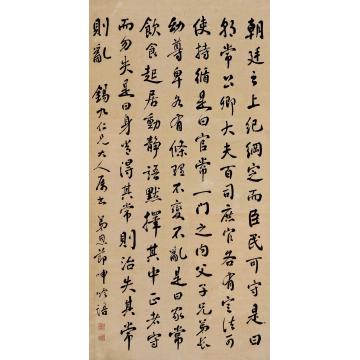 朝廷之上紀綱定而臣民可守是曰
朝常公卿大夫百司庶官各有定法可
使持循是曰官常一門之內父子兄弟長
幼尊卑各有條理不變不亂是曰家常
飲食起居動靜語默擇其中正者守
而勿失是曰身常得其常則治失其常
則亂 錫九仁兄大人屬書 弟恩節呻吟語